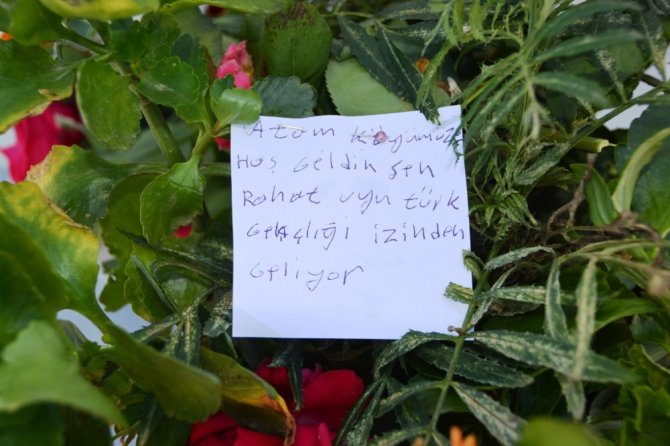 Atam Köyümüze
Hoş Geldin Sen
Rahat uyu türk
Gençliği izinden
Geliyor